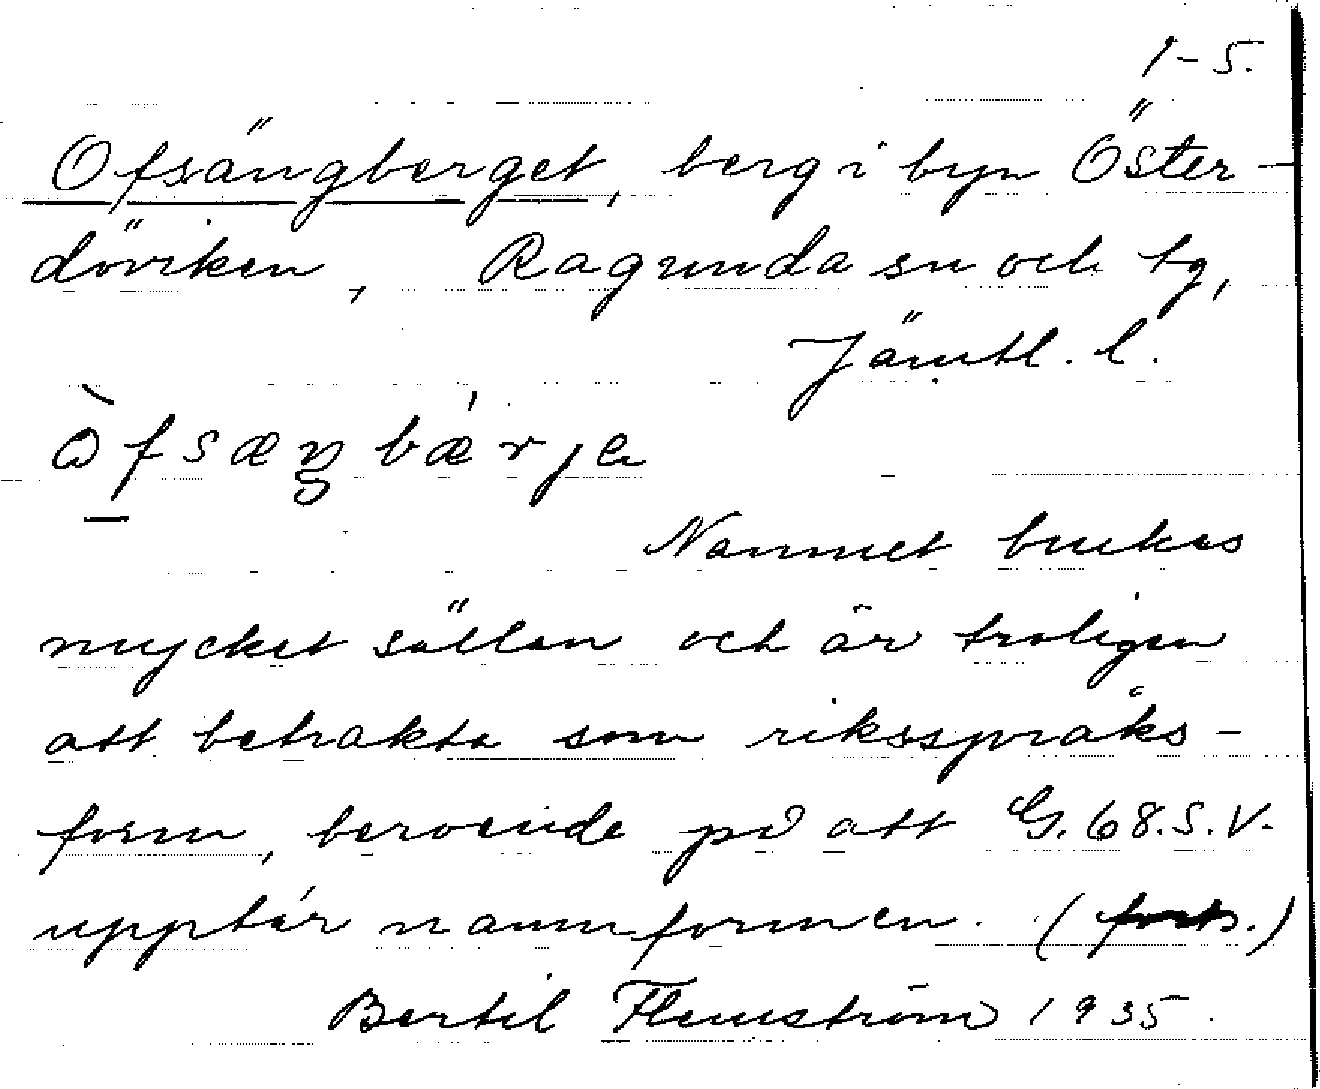 1-5.
Ofsängberget, berg i byn Öster-
döviken, Ragunda sn och tg,
Jämtl. l.
òfsæŋbǽrjə
Namnet brukas
mycket sällan och är troligen
att betrakta som riksspråks-
form, beroende på att G.68.S.V.
upptar namnformen. (forts.)
Bertil Flemström 1935.